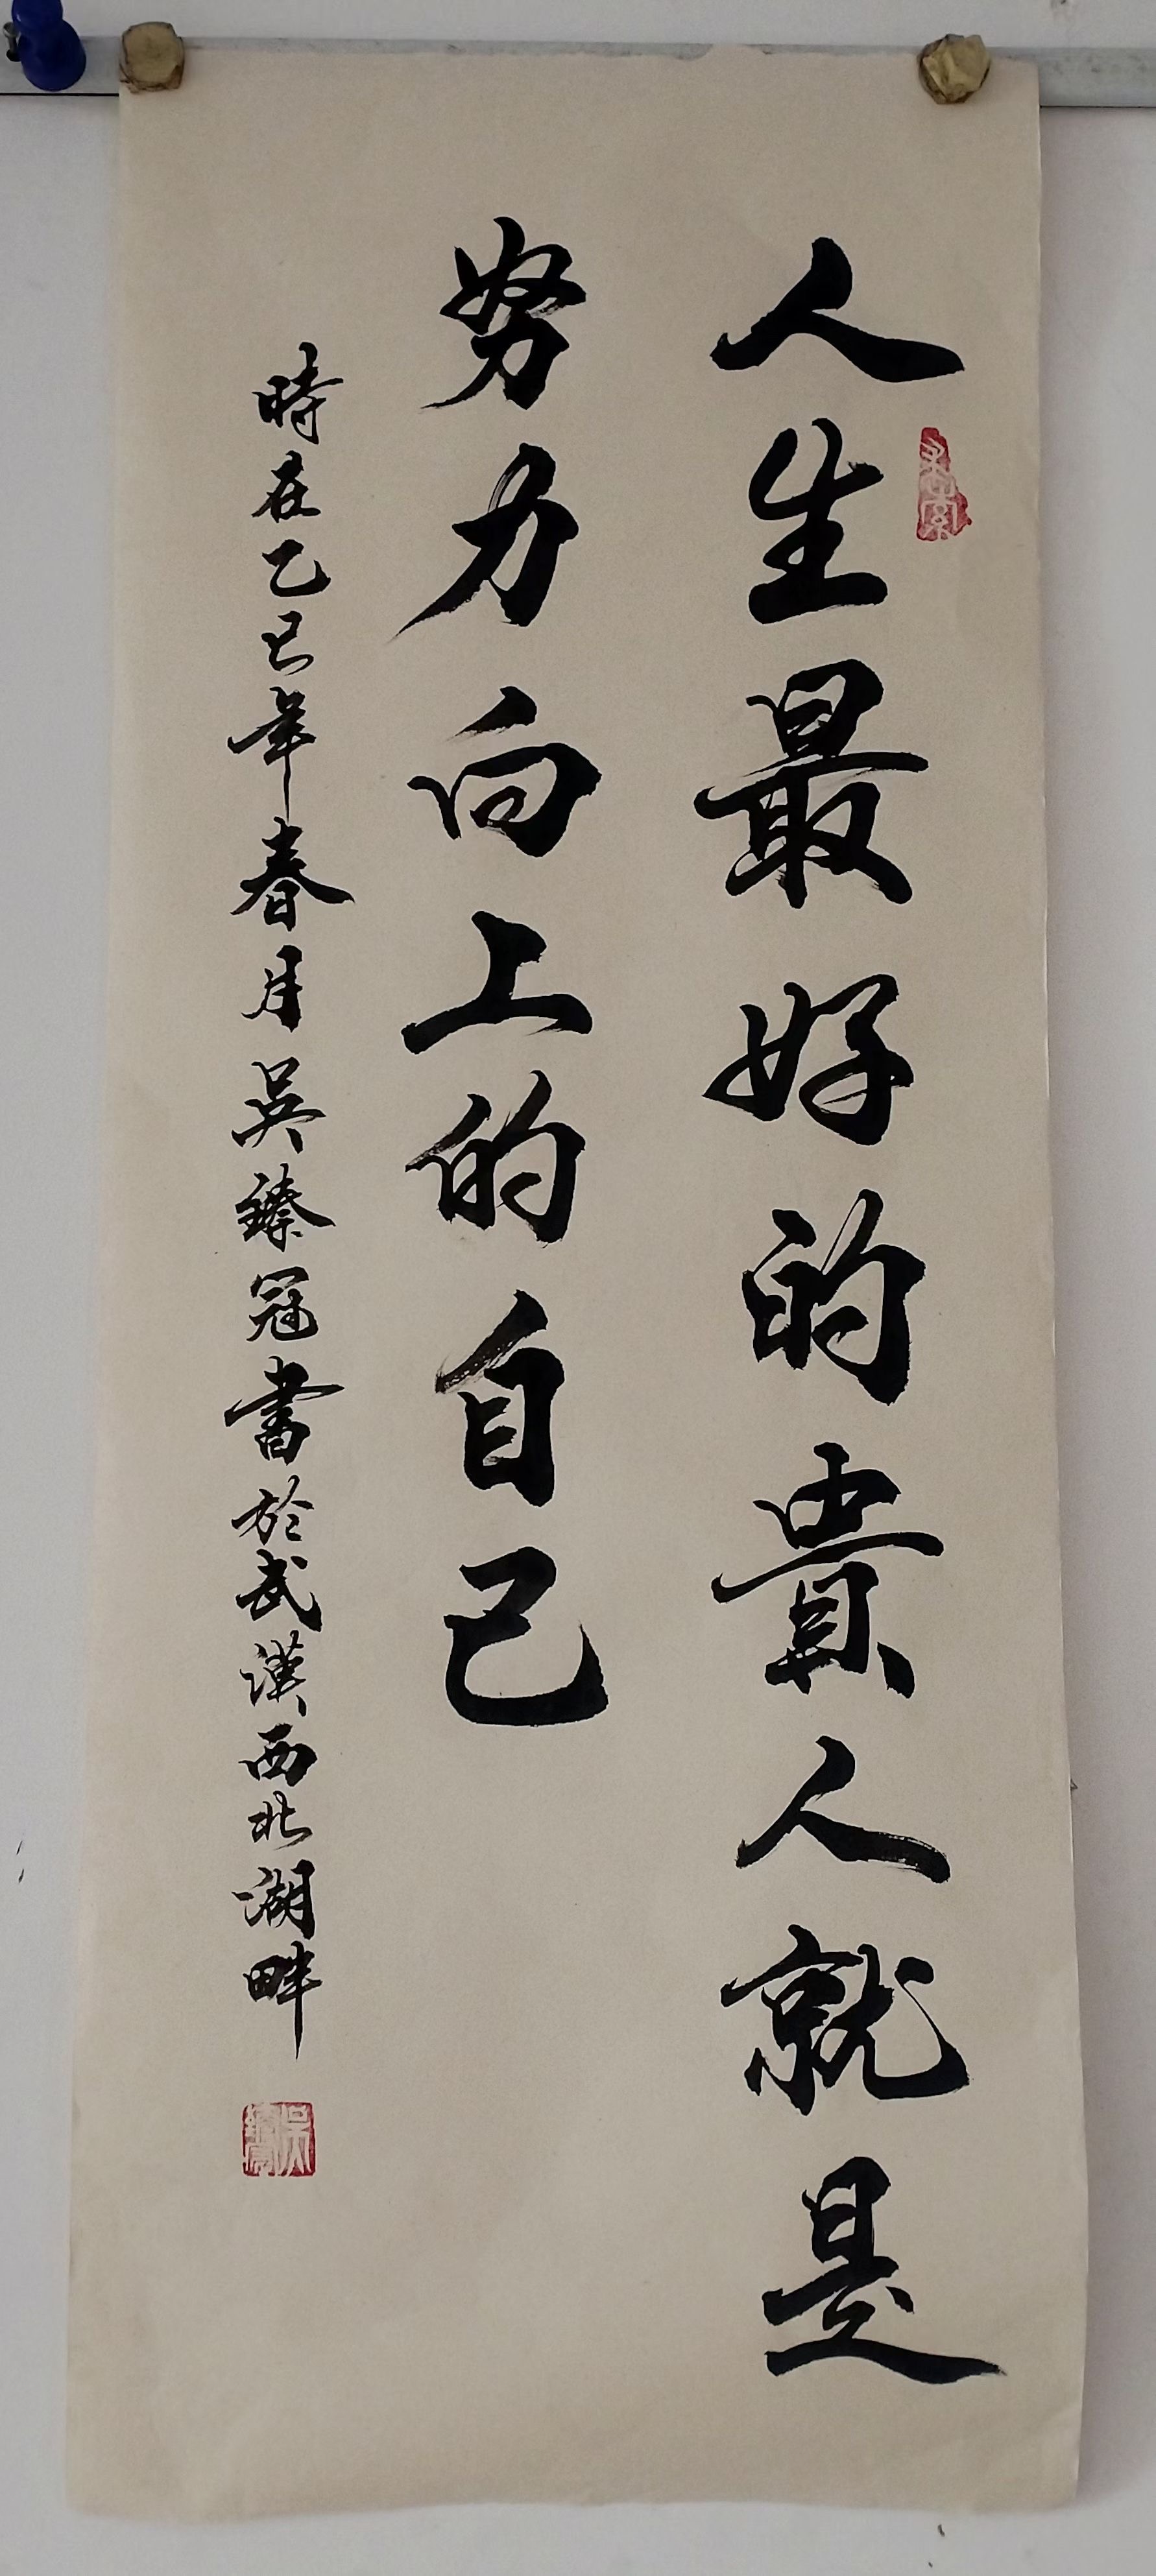 人生最好的貴人就是
努力向上的自己
時在乙巳年春月吳臻冠書於武漢西北湖畔